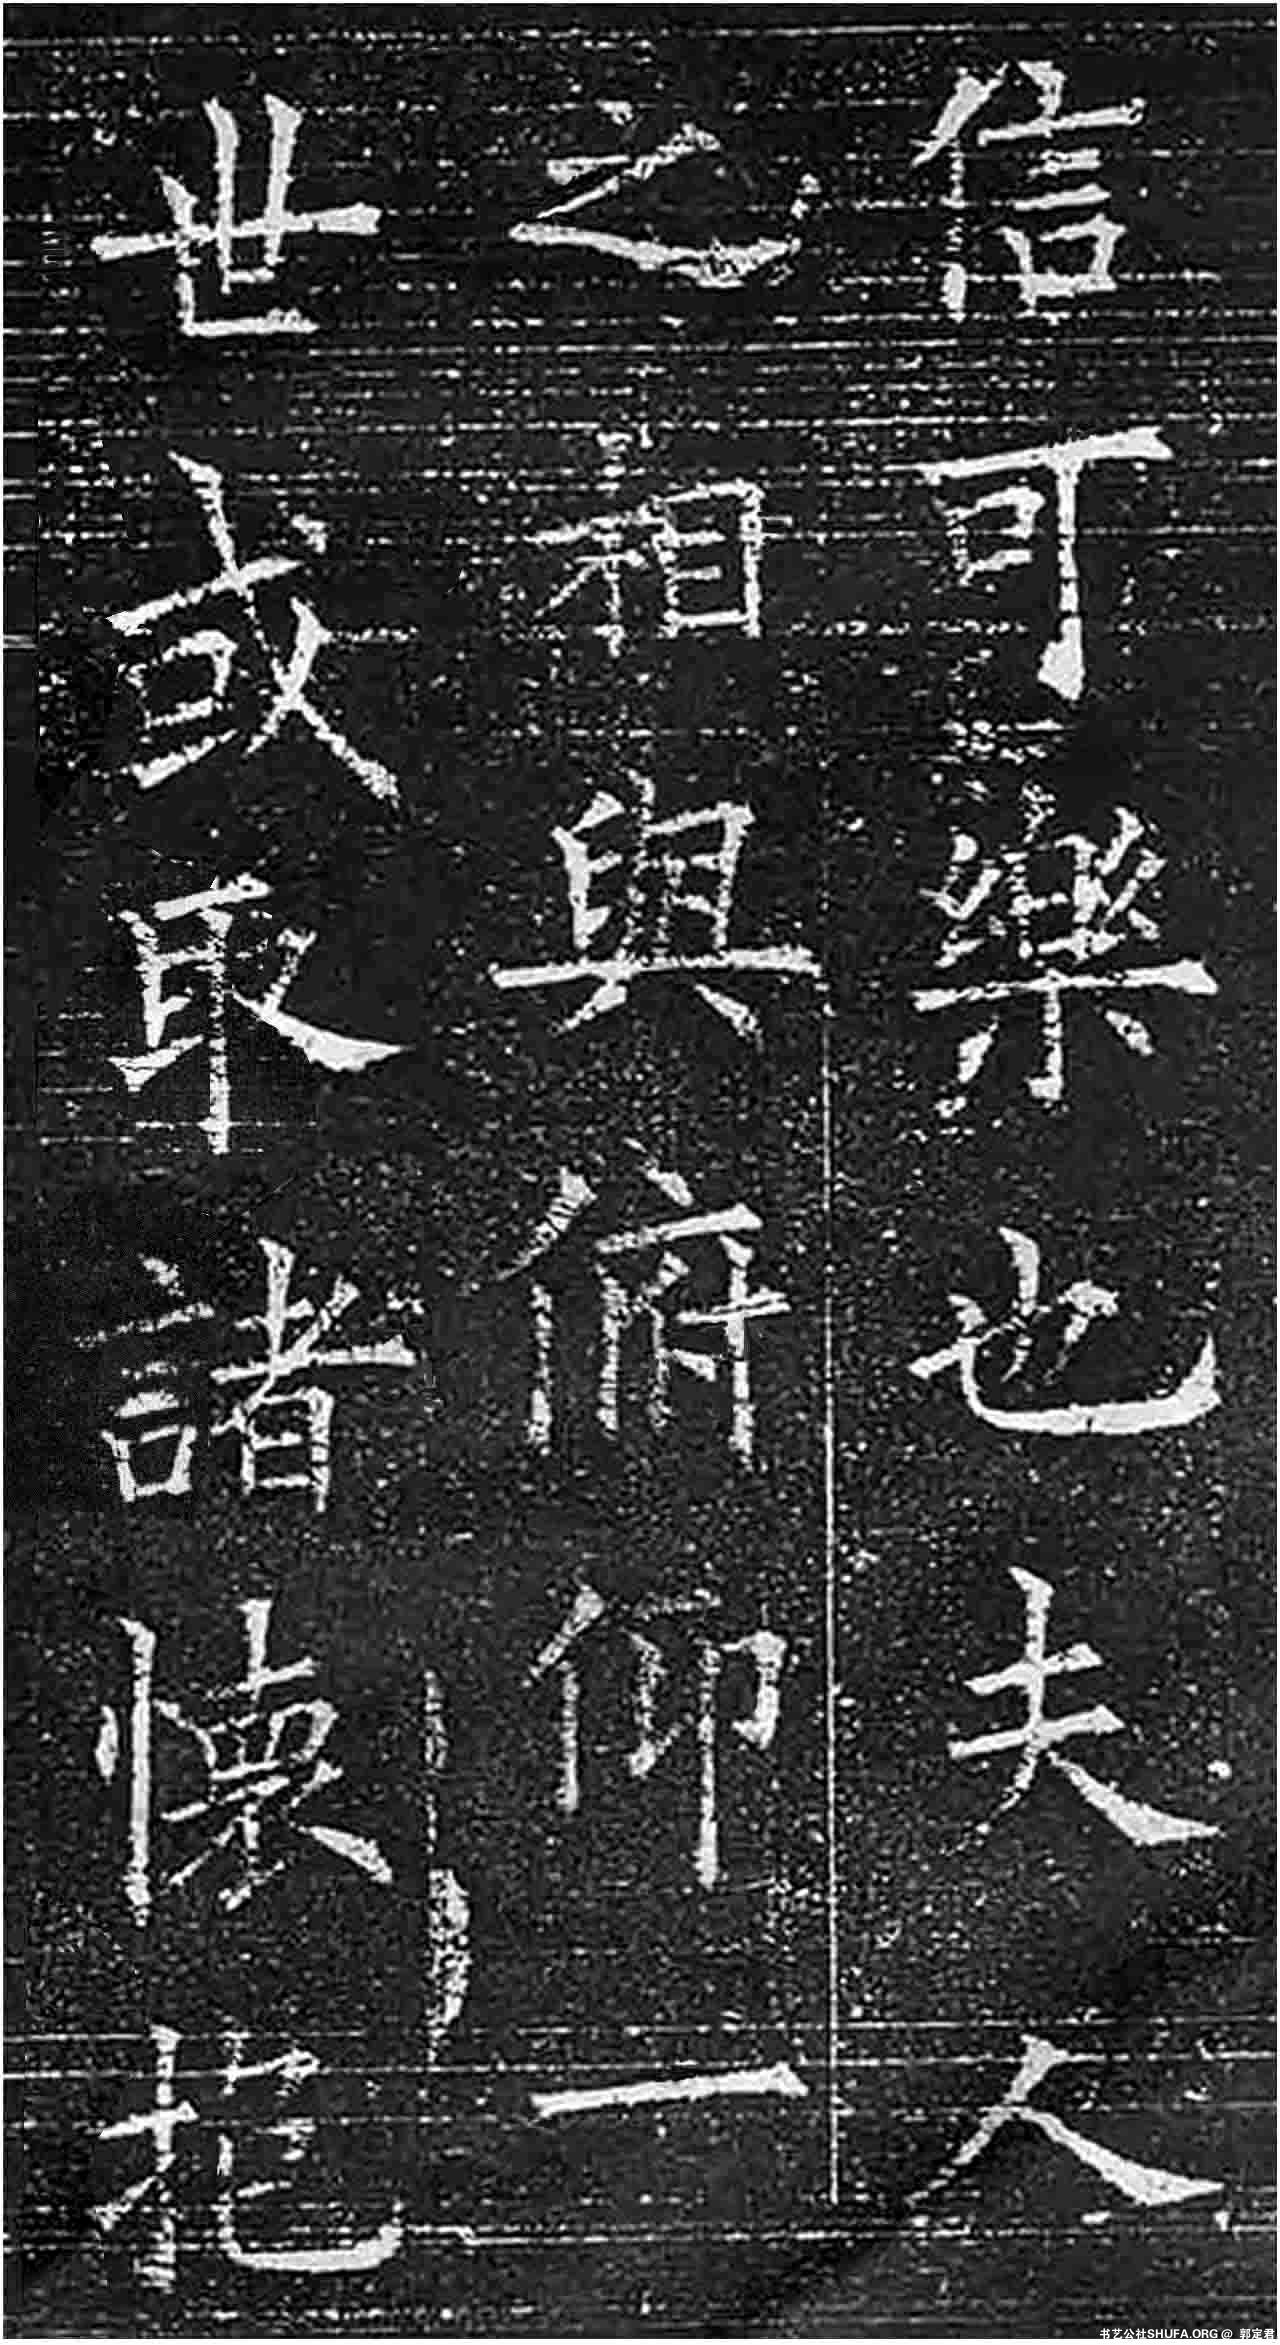 信可樂也夫人
之相與俯仰一
世或取諸懷抱
书艺公社SHUFA.ORG @ 郭定君